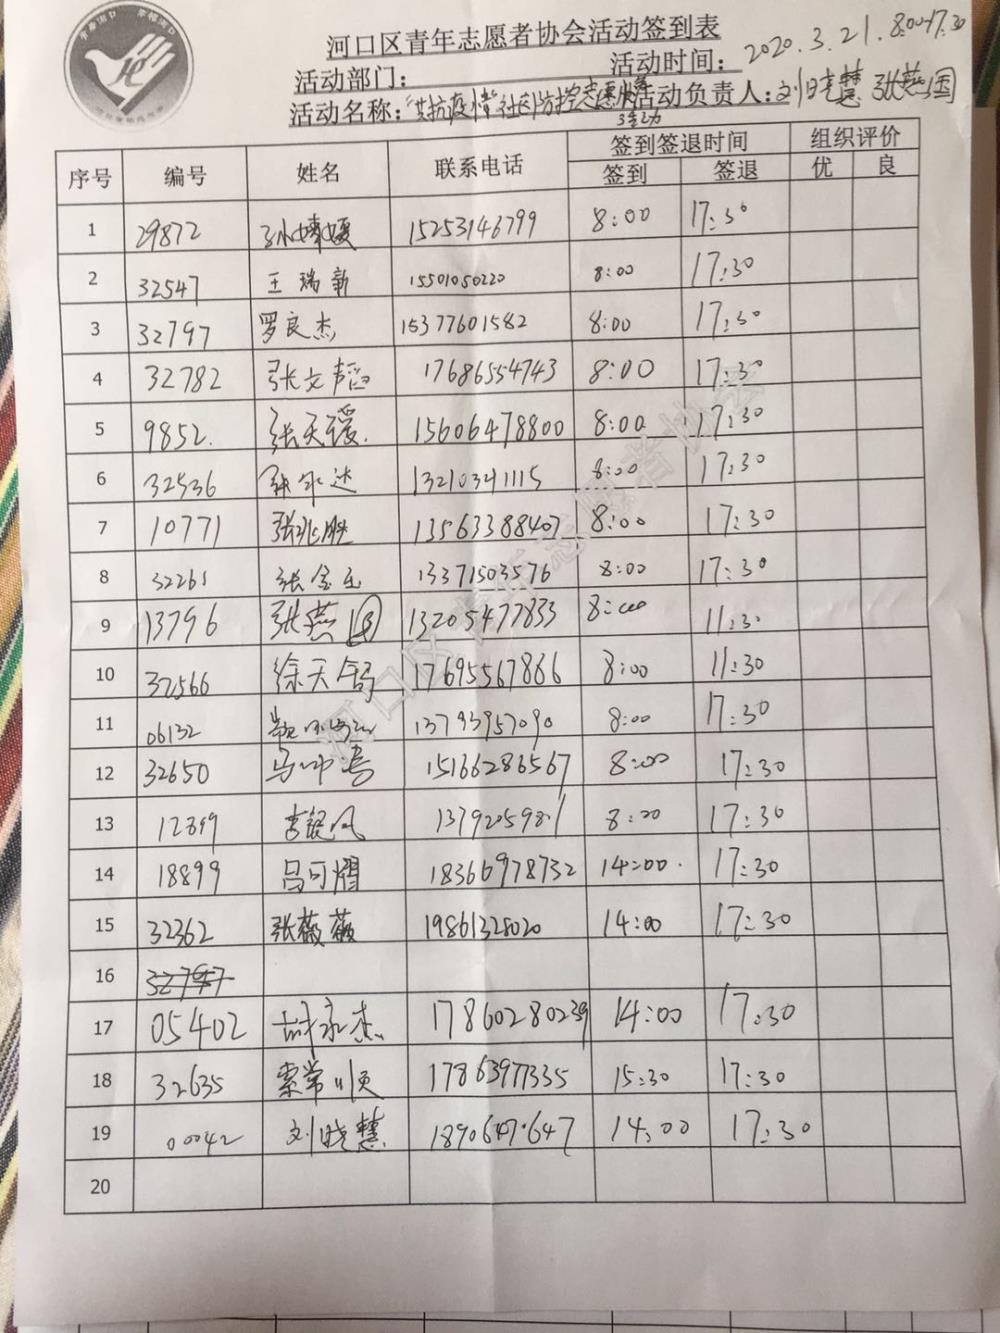 河口区青年志愿者协会活动签到表
活动部门: 活动时间: 2020.3.21.8:00-17:30
活动名称: "共抗疫情"社区防控志愿服务活动 活动负责人: 刘晓慧 张燕国
序号 编号 姓名 联系电话 签到签退时间 组织评价
签到 签退 优 良
1 29872 孙婧媛 15253146799 8:00 17:30
2 32547 王瑞新 15501050220 8:00 17:30
3 32797 罗良杰 15377601582 8:00 17:30
4 32782 张文韬 17686554743 8:00 17:30
5 9852. 张天瑷. 15606478800 8:00 17:30
6 32536 13210341115 8:00 17:30
7 10771 张兆胜 13563388407 8:00 17:30
8 32261 张金玉 13371503576 8:00 17:30
9 13796 张燕国 13205477833 8:00 11:30
10 32566 徐天 17695567866 8:00 11:30
11 06132 13793957090 8:00 17:30
12 32650 马帅 15166286567 8:00 17:30
13 12399 8:00 17:30
14 18899 吕可熠 18366978732 14:00. 17:30
15 32362 张薇薇 19861328020 14:00 17:30
16 32747
17 05402 胡永杰 17860280239 14:00 17:30
18 32635 索常顺 17863977335 15:30 17:30
19 00042 刘晓慧 14:00 17:30
20
河口区青年志愿者协会